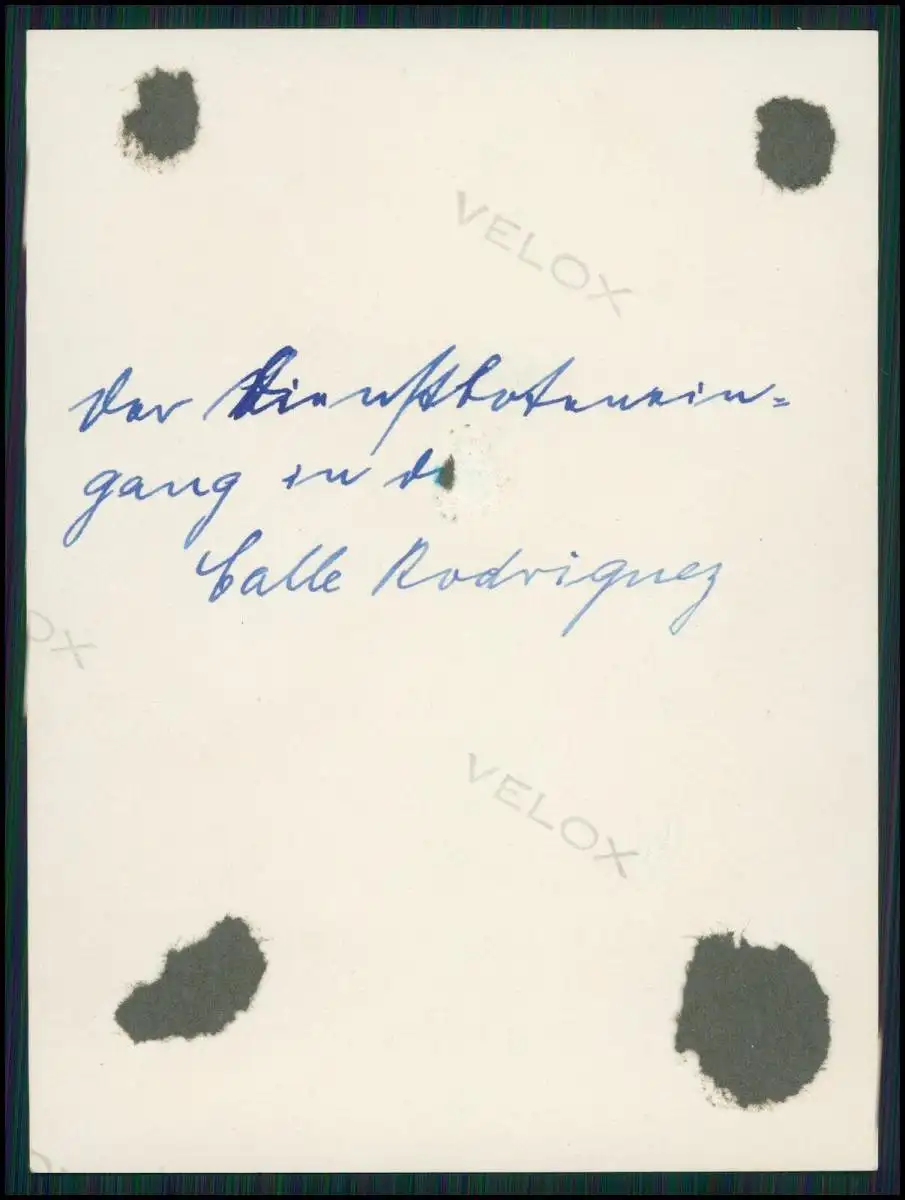 VELOX
Der Dienstbotenein=
gang in de
Calle Rodriguez
OX
VELOX